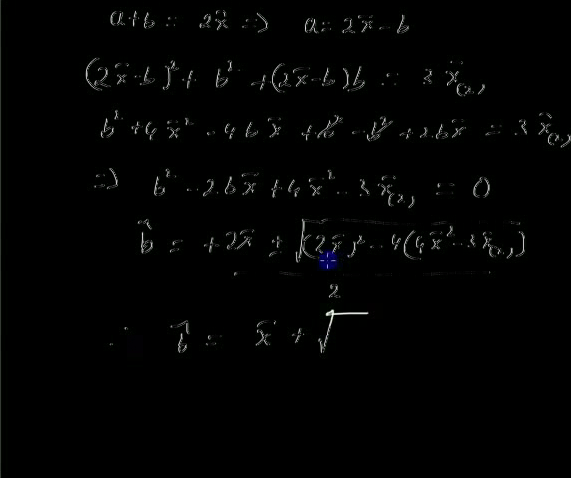 a+b = 2x̄ ⇒ a = 2x̄ - b
(2x̄-b)² + b² + (2x̄-b)b = 3x̄₍₂₎
b² + 4x̄² - 4bx̄ + b² - b² + 2bx̄ = 3x̄₍₂₎
⇒ b² - 2bx̄ + 4x̄² - 3x̄₍₂₎ = 0
b̂ = +2x̄ ± √((2x̄)² - 4(4x̄² - 3x̄₍₂₎)) / 2
∴ b̂ = x̄ + √